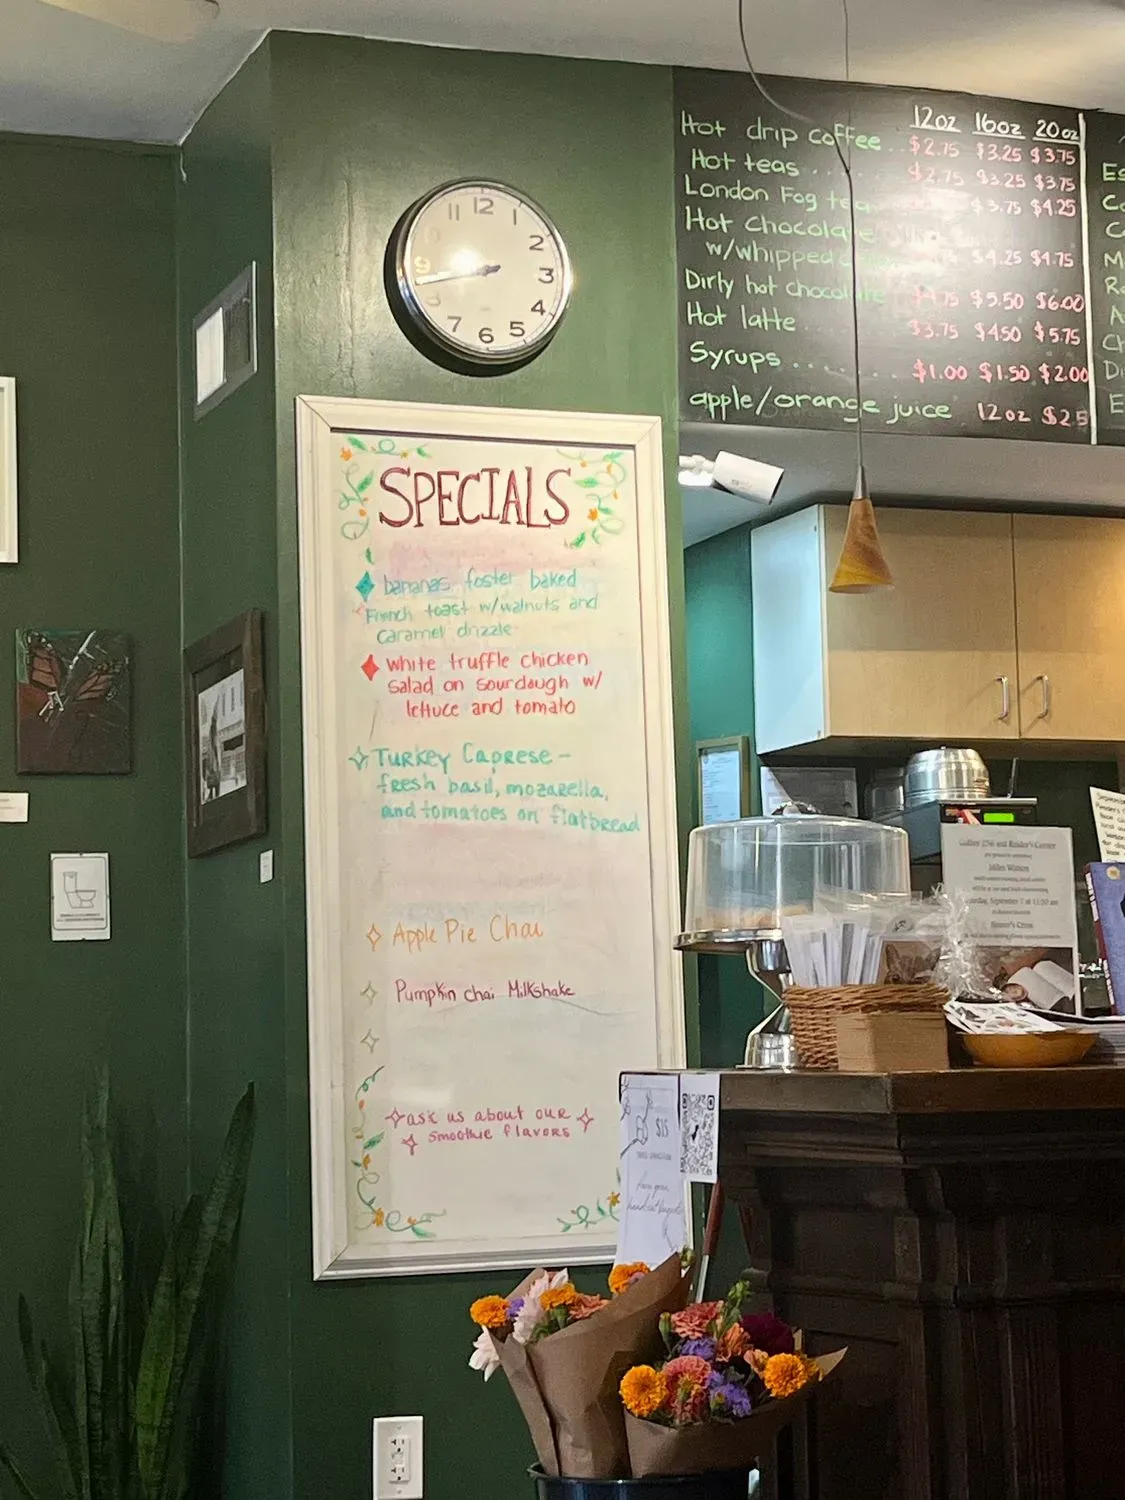 12oz 16oz 20oz
Hot drip coffee .. $2.75 $3.25 $3.75
Hot teas .... $2.75 $3.25 $3.75
London Fog tea $3.75 $4.25
Hot chocolate
w/whipped $4.25 $4.75
Dirty hot chocolate $4.75 $5.50 $6.00
Hot latte $3.75 $4.50 $5.75
Syrups ... $1.00 $1.50 $2.00
apple/orange juice 12oz $2.5
11 12 1
2
9 3
4
7 6 5
SPECIALS
bananas foster baked
French toast w/walnuts and
caramel drizzle
white truffle chicken
salad on sourdough w/
lettuce and tomato
Turkey Caprese -
fresh basil, mozarella,
and tomatoes on flatbread
Apple Pie Chai
Pumpkin chai Milkshake
ask us about our
smoothie flavors
$15